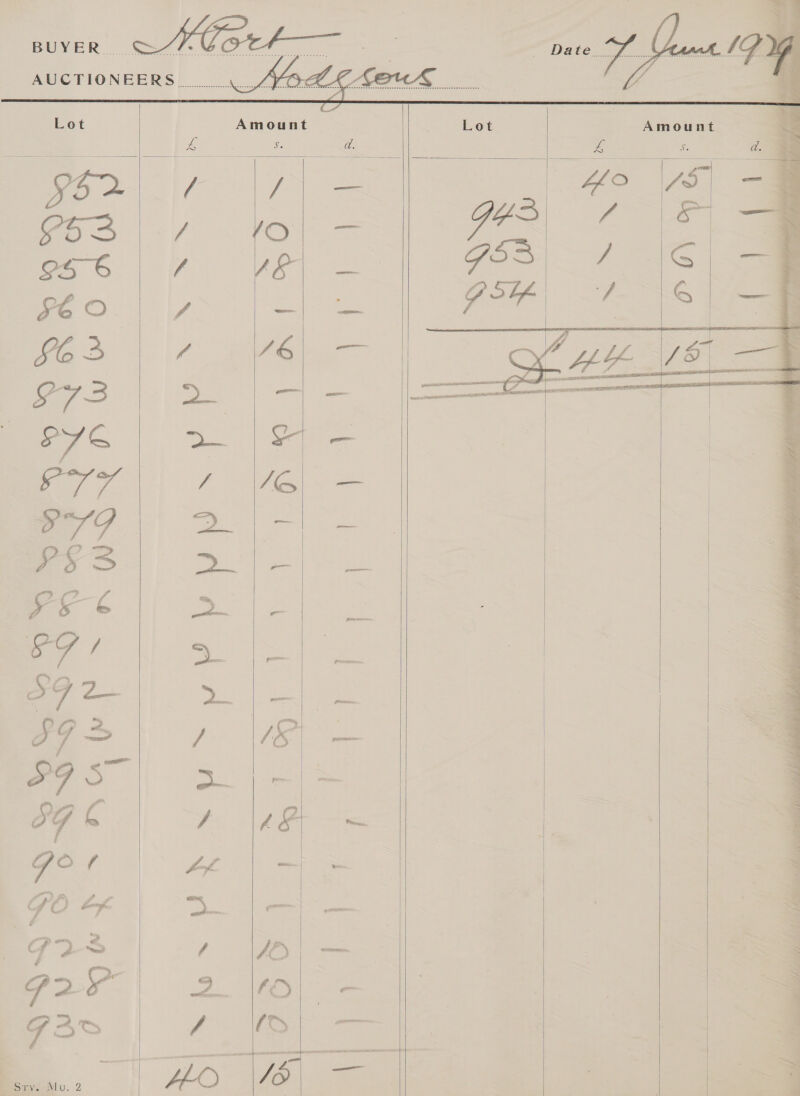 BUYER
Date 7 June
AUCTIONEERS Hodgsons
Lot Amount
£ s. d.
852 1 1 —
853 1 10 —
856 1 18 —
860 1 — —
863 1 16 —
873 2 — —
876 2 8 —
877 1 16 —
879 2 — —
883 2 — —
886 2 — —
891 2 — —
892 2 — —
893 1 18 —
895 2 — —
896 1 18 —
901 4 — —
904 2 — —
923 1 10 —
928 2 10 —
930 1 10 —
40 15 —
Sry. Mu. 2
Lot Amount
£ s. d.
40 15 —
943 1 8 —
953 1 6 —
954 1 6 —
£44 15 —